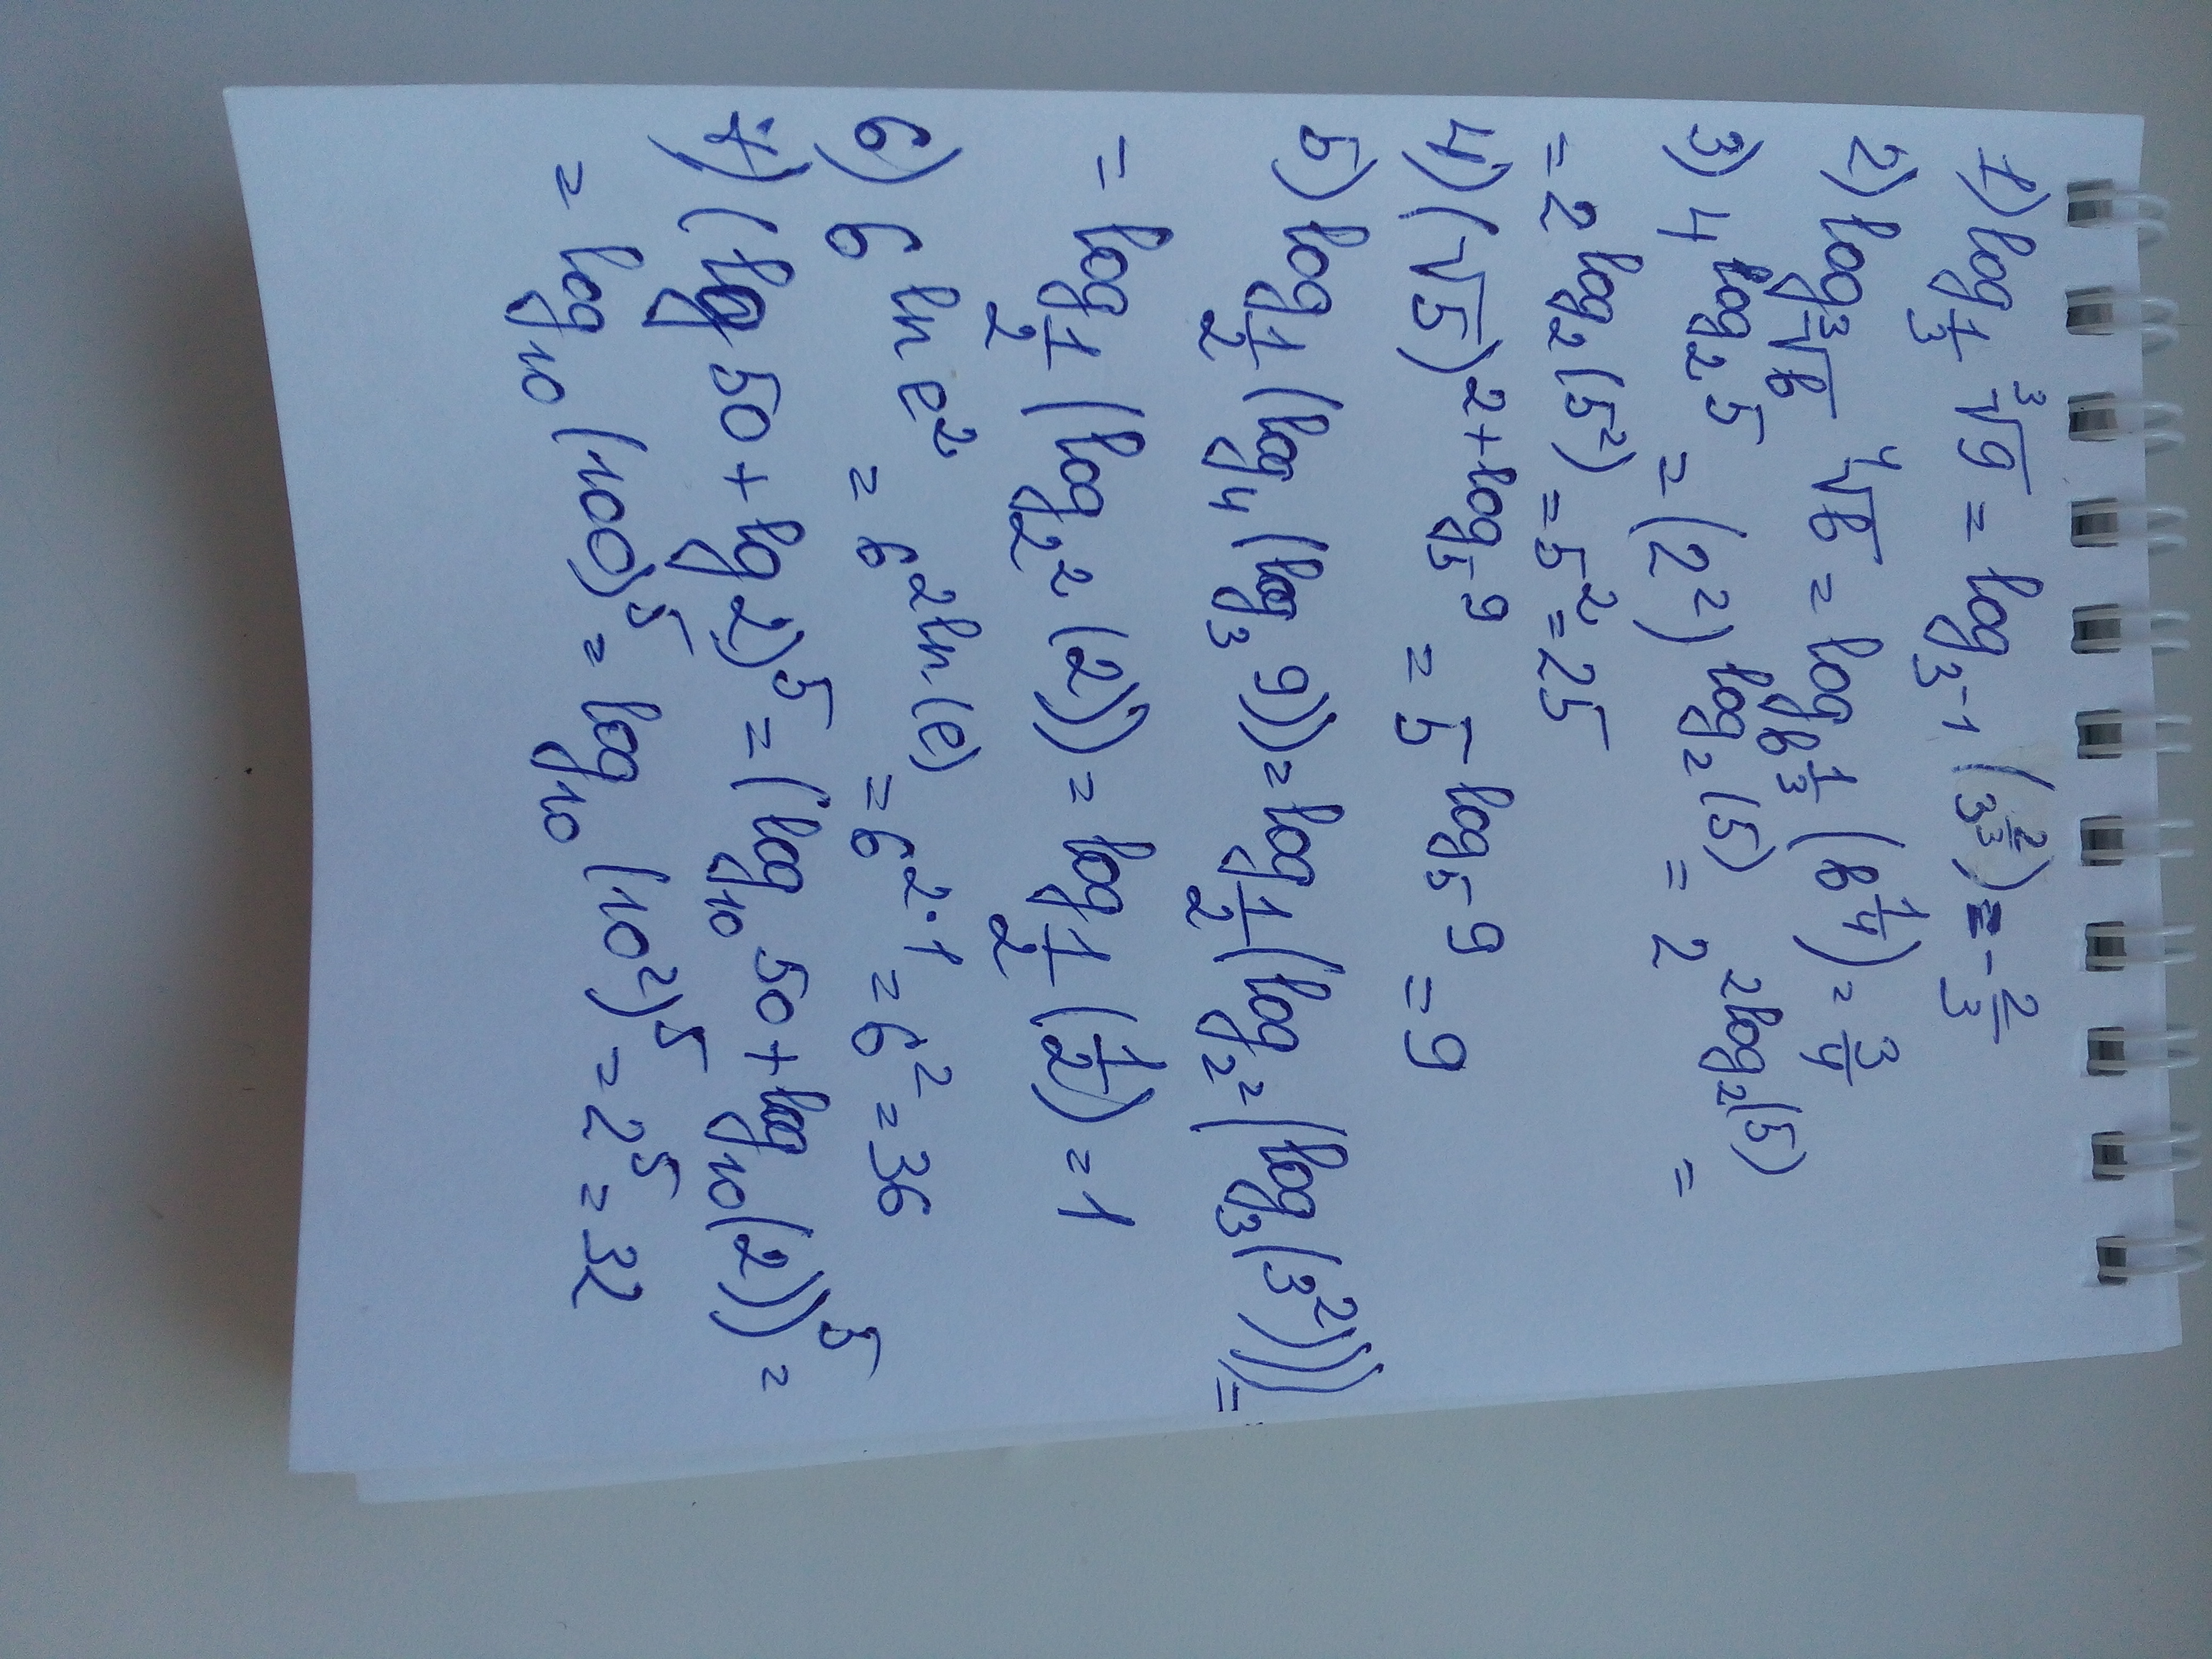 1) log_{1/3} ∛9 = log_{3^{-1}} (3^{2/3}) = -2/3
2) log_{∛b} ∜b = log_{b^{1/3}} (b^{1/4}) = 3/4
3) 4^{log_2 5} = (2^2)^{log_2(5)} = 2^{2log_2(5)} =
= 2^{log_2(5^2)} = 5^2 = 25
4) (√5)^{2+log_5 9} = 5^{log_5 9} = 9
5) log_{1/2} (log_4 (log_3 9)) = log_{1/2} (log_{2^2} (log_3 (3^2)))) =
= log_{1/2} (log_{2^2} (2)) = log_{1/2} (1/2) = 1
6) 6^{ln e^2} = 6^{2ln(e)} = 6^{2·1} = 6^2 = 36
7) (lg 50 + lg 2)^5 = (log_{10} 50 + log_{10} (2))^5 =
= log_{10} (100)^5 = log_{10} (10^2)^5 = 2^5 = 32